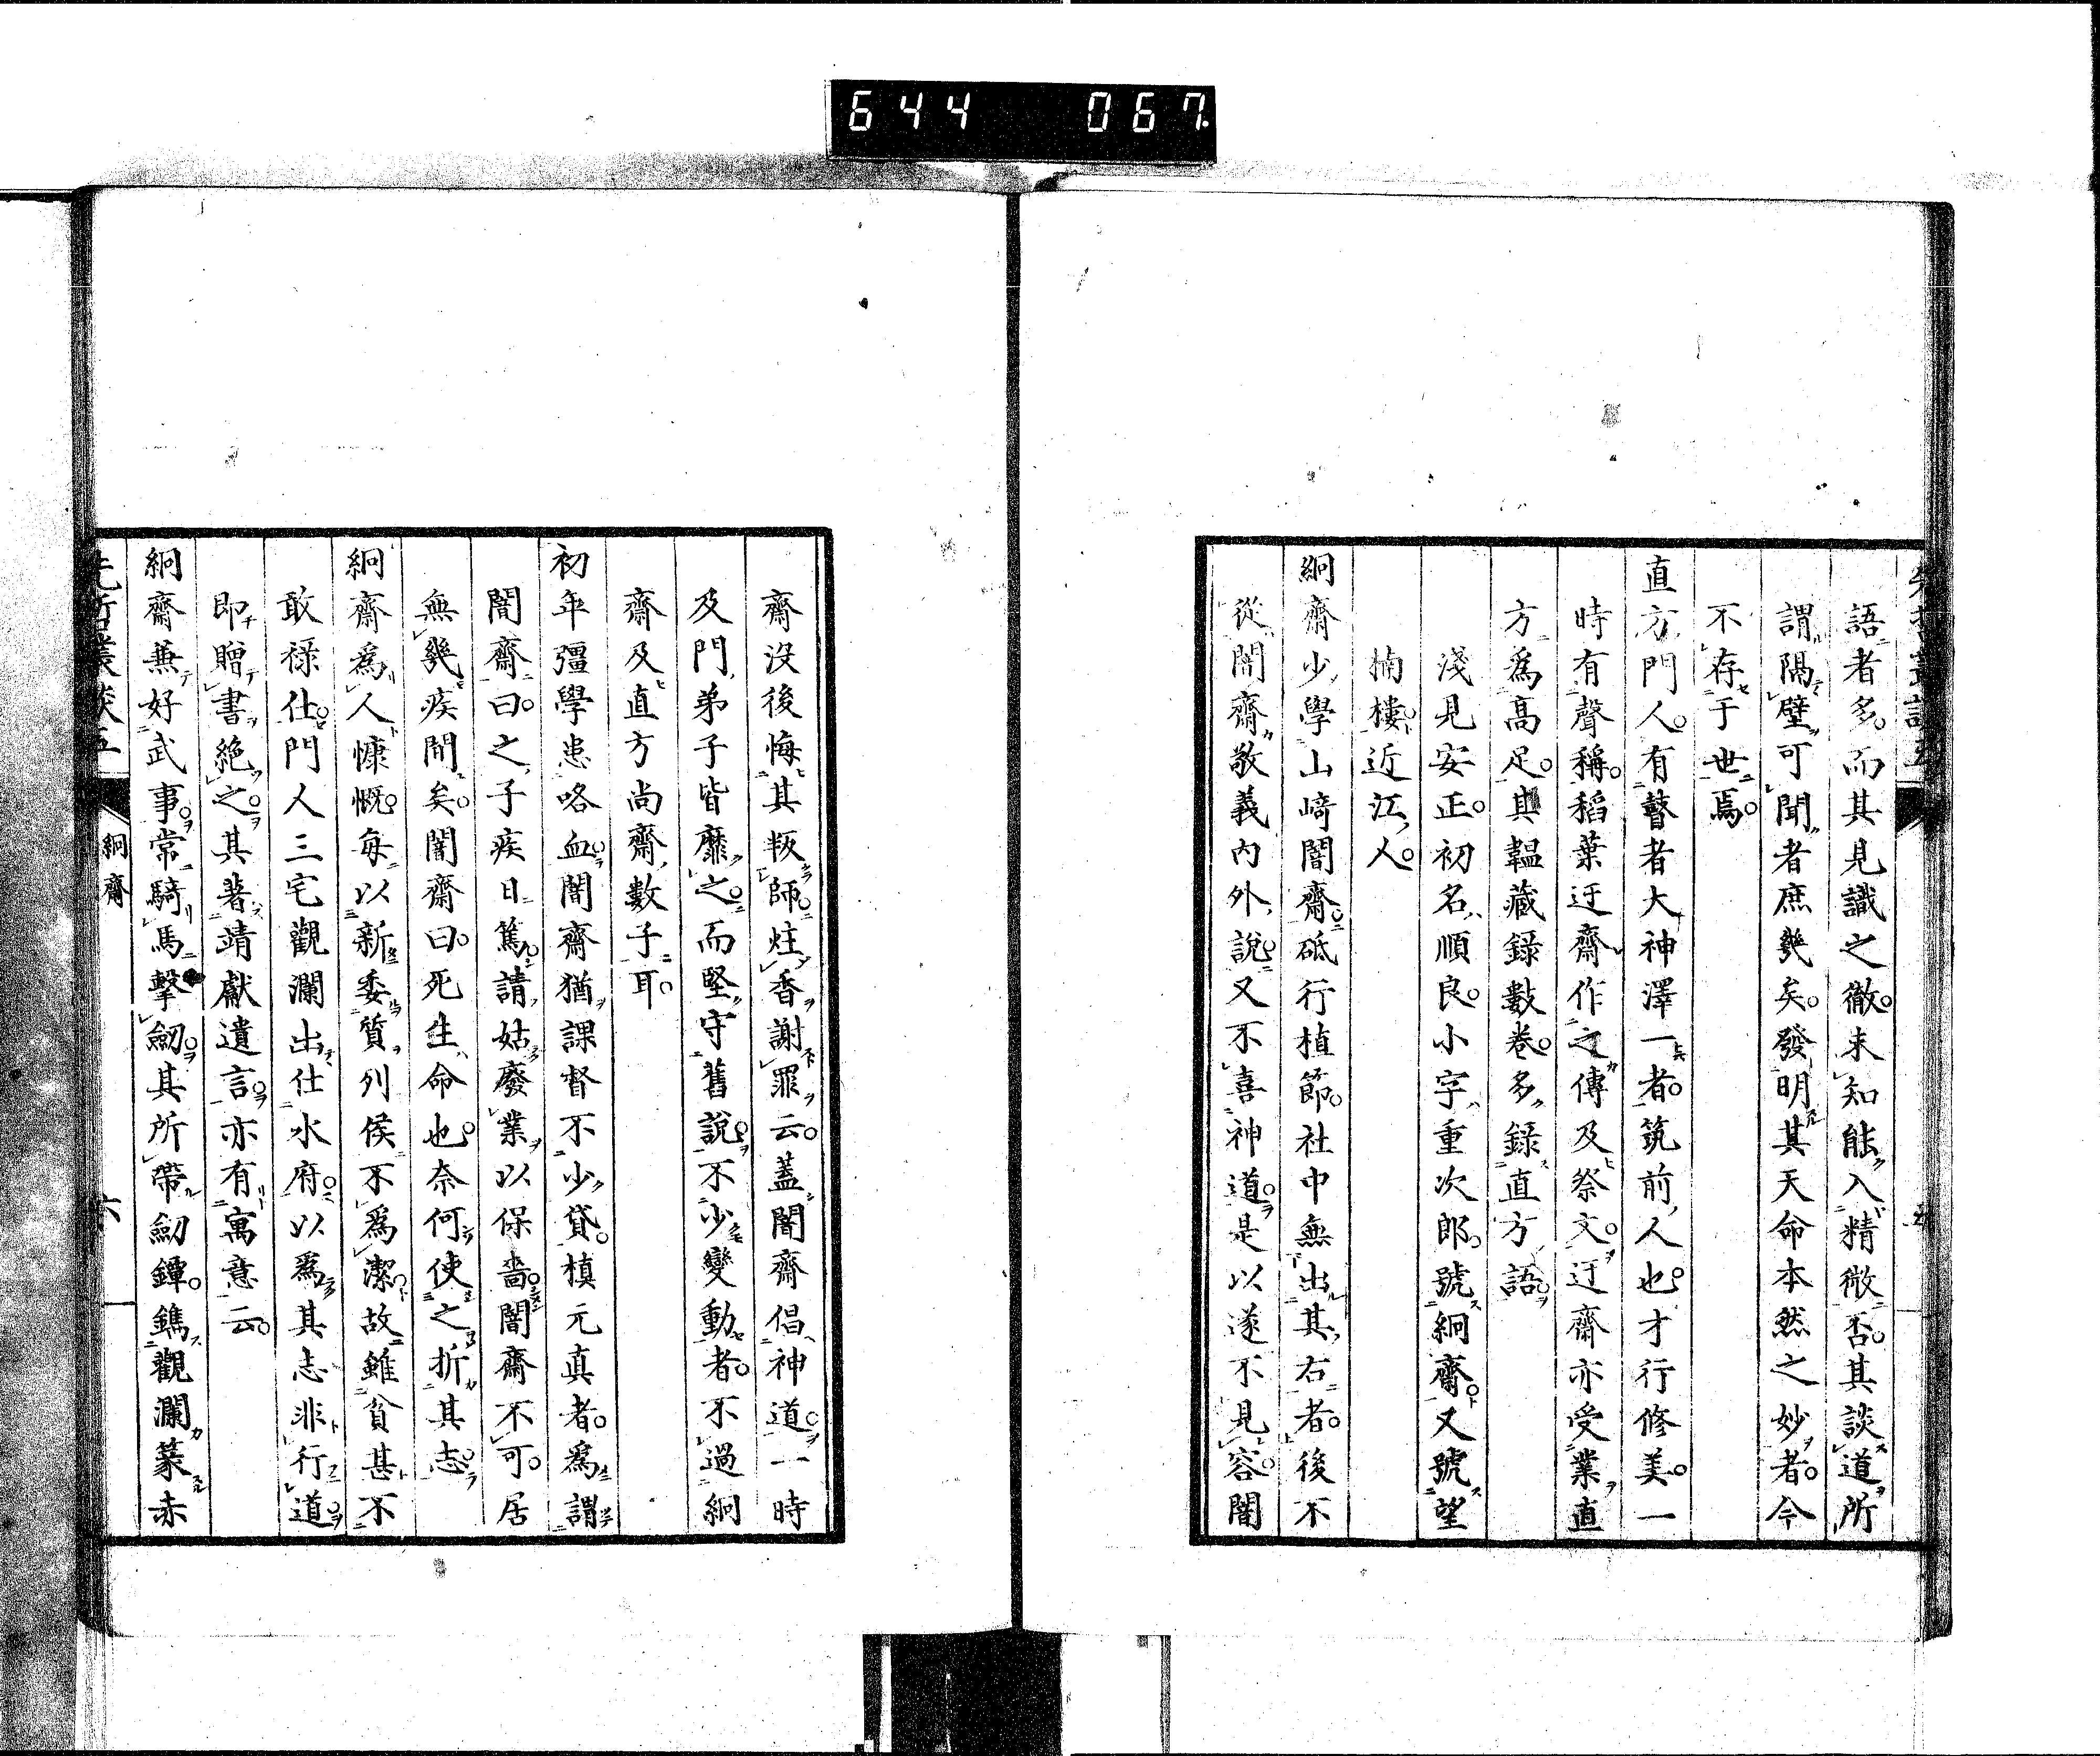 644 067
語者多而其見識之徹未知能入精微否其談道所
謂隔壁可聞者庶幾矣發明其天命本然之妙者今
不存于世焉
直方門人有瞽者大神澤一者筑前人也才行修美一
時有聲稱稻葉迂齋作之傳及祭文迂齋亦受業直
方為高足其韞藏錄數卷多錄直方語
淺見安正初名順良小字重次郎號絅齋又號望
楠樓近江人
絅齋少學山﨑闇齋砥行植節社中無出其右者後不
從闇齋敬義內外說又不喜神道是以遂不見容闇
齋沒後悔其叛師炷香謝罪云蓋闇齋倡神道一時
及門弟子皆靡之而堅守舊說不少變動者不過絅
齋及直方尚齋數子耳
初年彊學患咯血闇齋猶課督不少貸槙元真者為謂
闇齋曰之子疾日篤請姑廢業以保嗇闇齋不可居
無幾疾間矣闇齋曰死生命也奈何使之折其志
絅齋為人慷慨每以新委質列侯不為潔故雖貧甚不
敢祿仕門人三宅觀瀾出仕水府以為其志非行道
即贈書絕之其著靖獻遺言亦有寓意云
絅齋兼好武事常騎馬擊劒其所帶劒鐔鐫觀瀾篆赤
先哲叢談五
絅齋
六